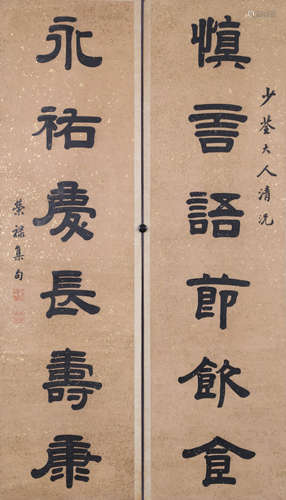 慎言語節飲食
少荃大人清
永祐慶長壽康
榮祿集句